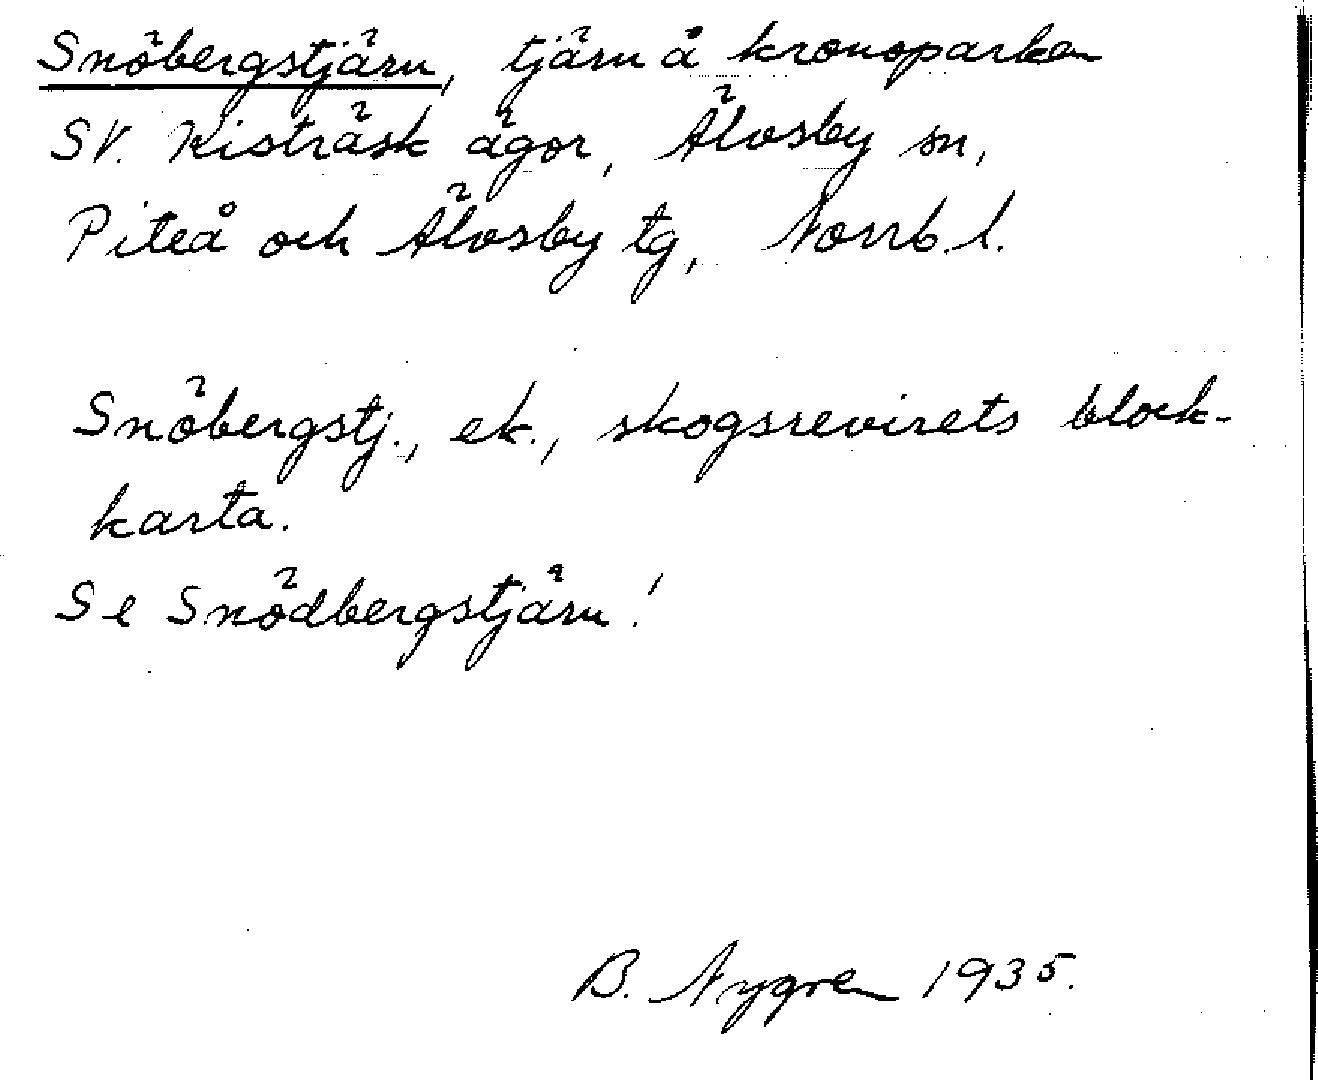 Snöbergstjärn, tjärn å kronoparken
SV. Kisträsk ägor, Älvsby sn,
Piteå och Älvsby tg, Norrb. l.
Snöbergstj., ek., skogsrevirets block-
karta.
Se Snödbergstjärn!
B. Nygren 1935.